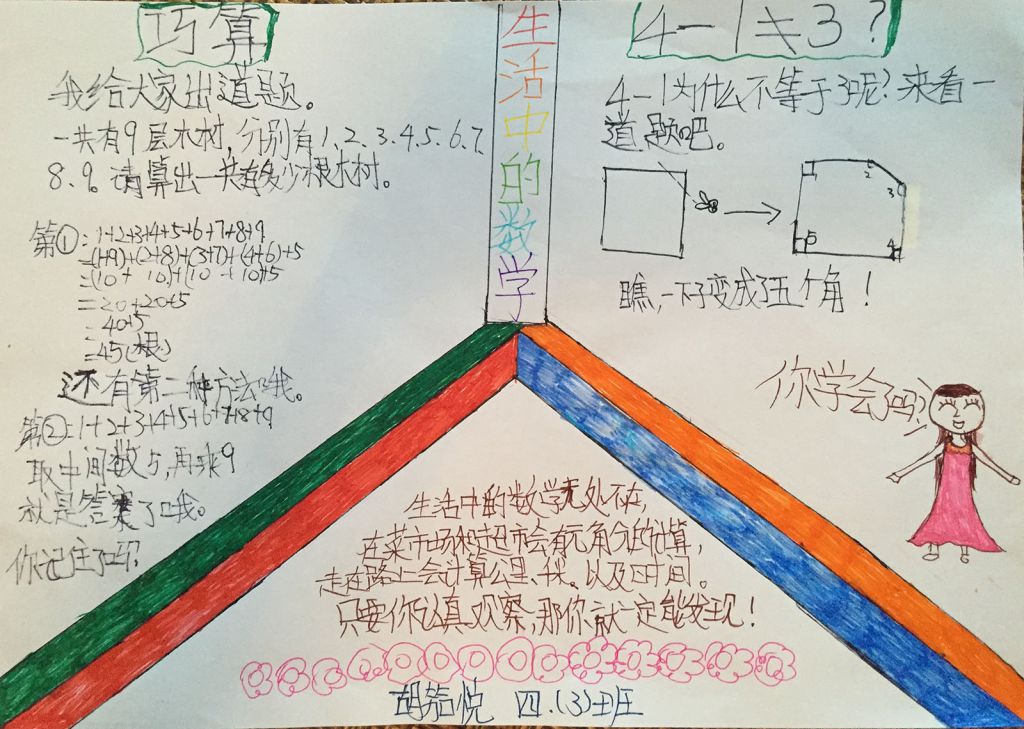 巧算
我给大家出道题。
一共有9层木材,分别有1、2、3、4、5、6、7、
8、9。请算出一共有多少根木材。
第①:1+2+3+4+5+6+7+8+9
=(1+9)+(2+8)+(3+7)+(4+6)+5
=(10+10)+(10+10)+5
=20+20+5
=40+5
=45(根)
还有第二种方法哦。
第②:1+2+3+4+5+6+7+8+9
取中间数5,再乘9
就是答案了哦。
你记住了吗?
生活中的数学
4-1≠3?
4-1为什么不等于3呢?来看一
道题吧。
1
2
3
4
5
瞧,一下子变成了五个角!
你学会吗?
生活中的数学无处不在,
在菜市场和超市会有元角分的计算,
走在路上会计算公里、千米。以及时间。
只要你认真观察,那你就一定能发现!
胡茹悦 四.(3)班